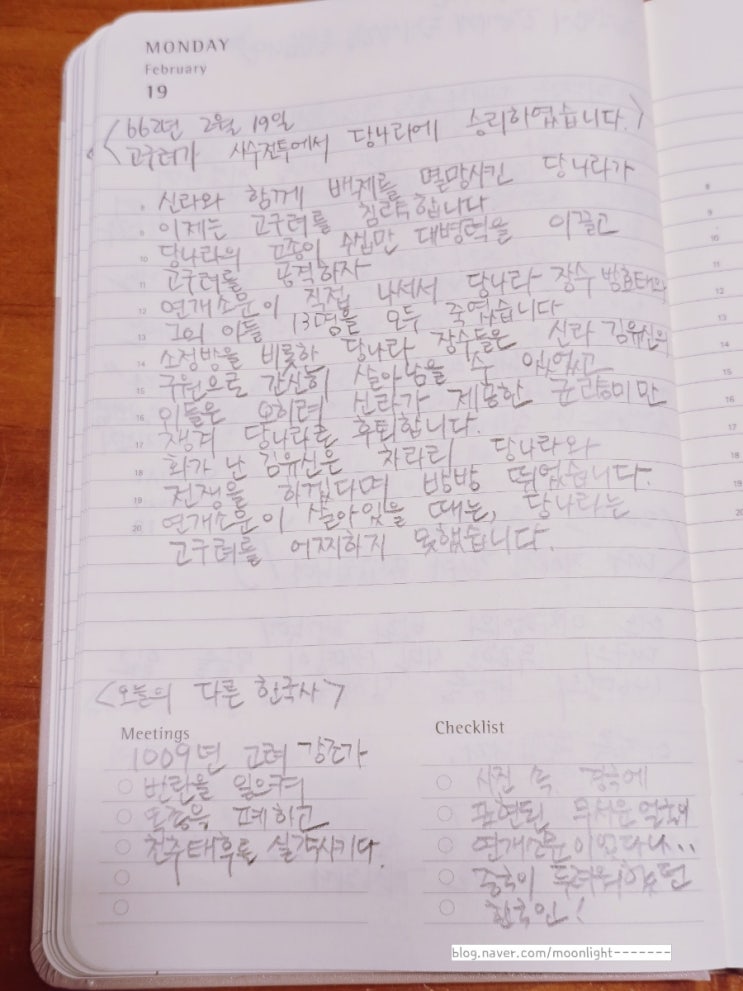 MONDAY
February
19
<662년 2월 19일
고구려가 사수전투에서 당나라에 승리하였습니다.>
신라와 함께 백제를 멸망시킨 당나라가
이제는 고구려를 침략합니다
당나라의 고종이 수십만 대병력을 이끌고
고구려를 공격하자
연개소문이 직접 나서서 당나라 장수 방효태와
그의 아들 13명을 모두 죽였습니다
소정방을 비롯한 당나라 장수들은 신라 김유신의
구원으로 간신히 살아남을 수 있었고
이들은 오히려 신라가 제공한 군량미만
챙겨 당나라로 후퇴합니다.
화가 난 김유신은 차라리 당나라와
전쟁을 하겠다며 방방 뛰었습니다.
연개소문이 살아있을 때는, 당나라는
고구려를 어찌하지 못했습니다.
<오늘의 다른 한국사>
Meetings
1009년 고려 강조가
반란을 일으켜
목종을 폐하고
천추태후를 실각시키다.
Checklist
사진 속 경극에
표현된 무서운 얼굴이
연개소문이었다니..
중국이 두려워했던
한국인!
blog.naver.com/moonlight-------
8
9
10
11
12
13
14
15
16
17
18
19
20